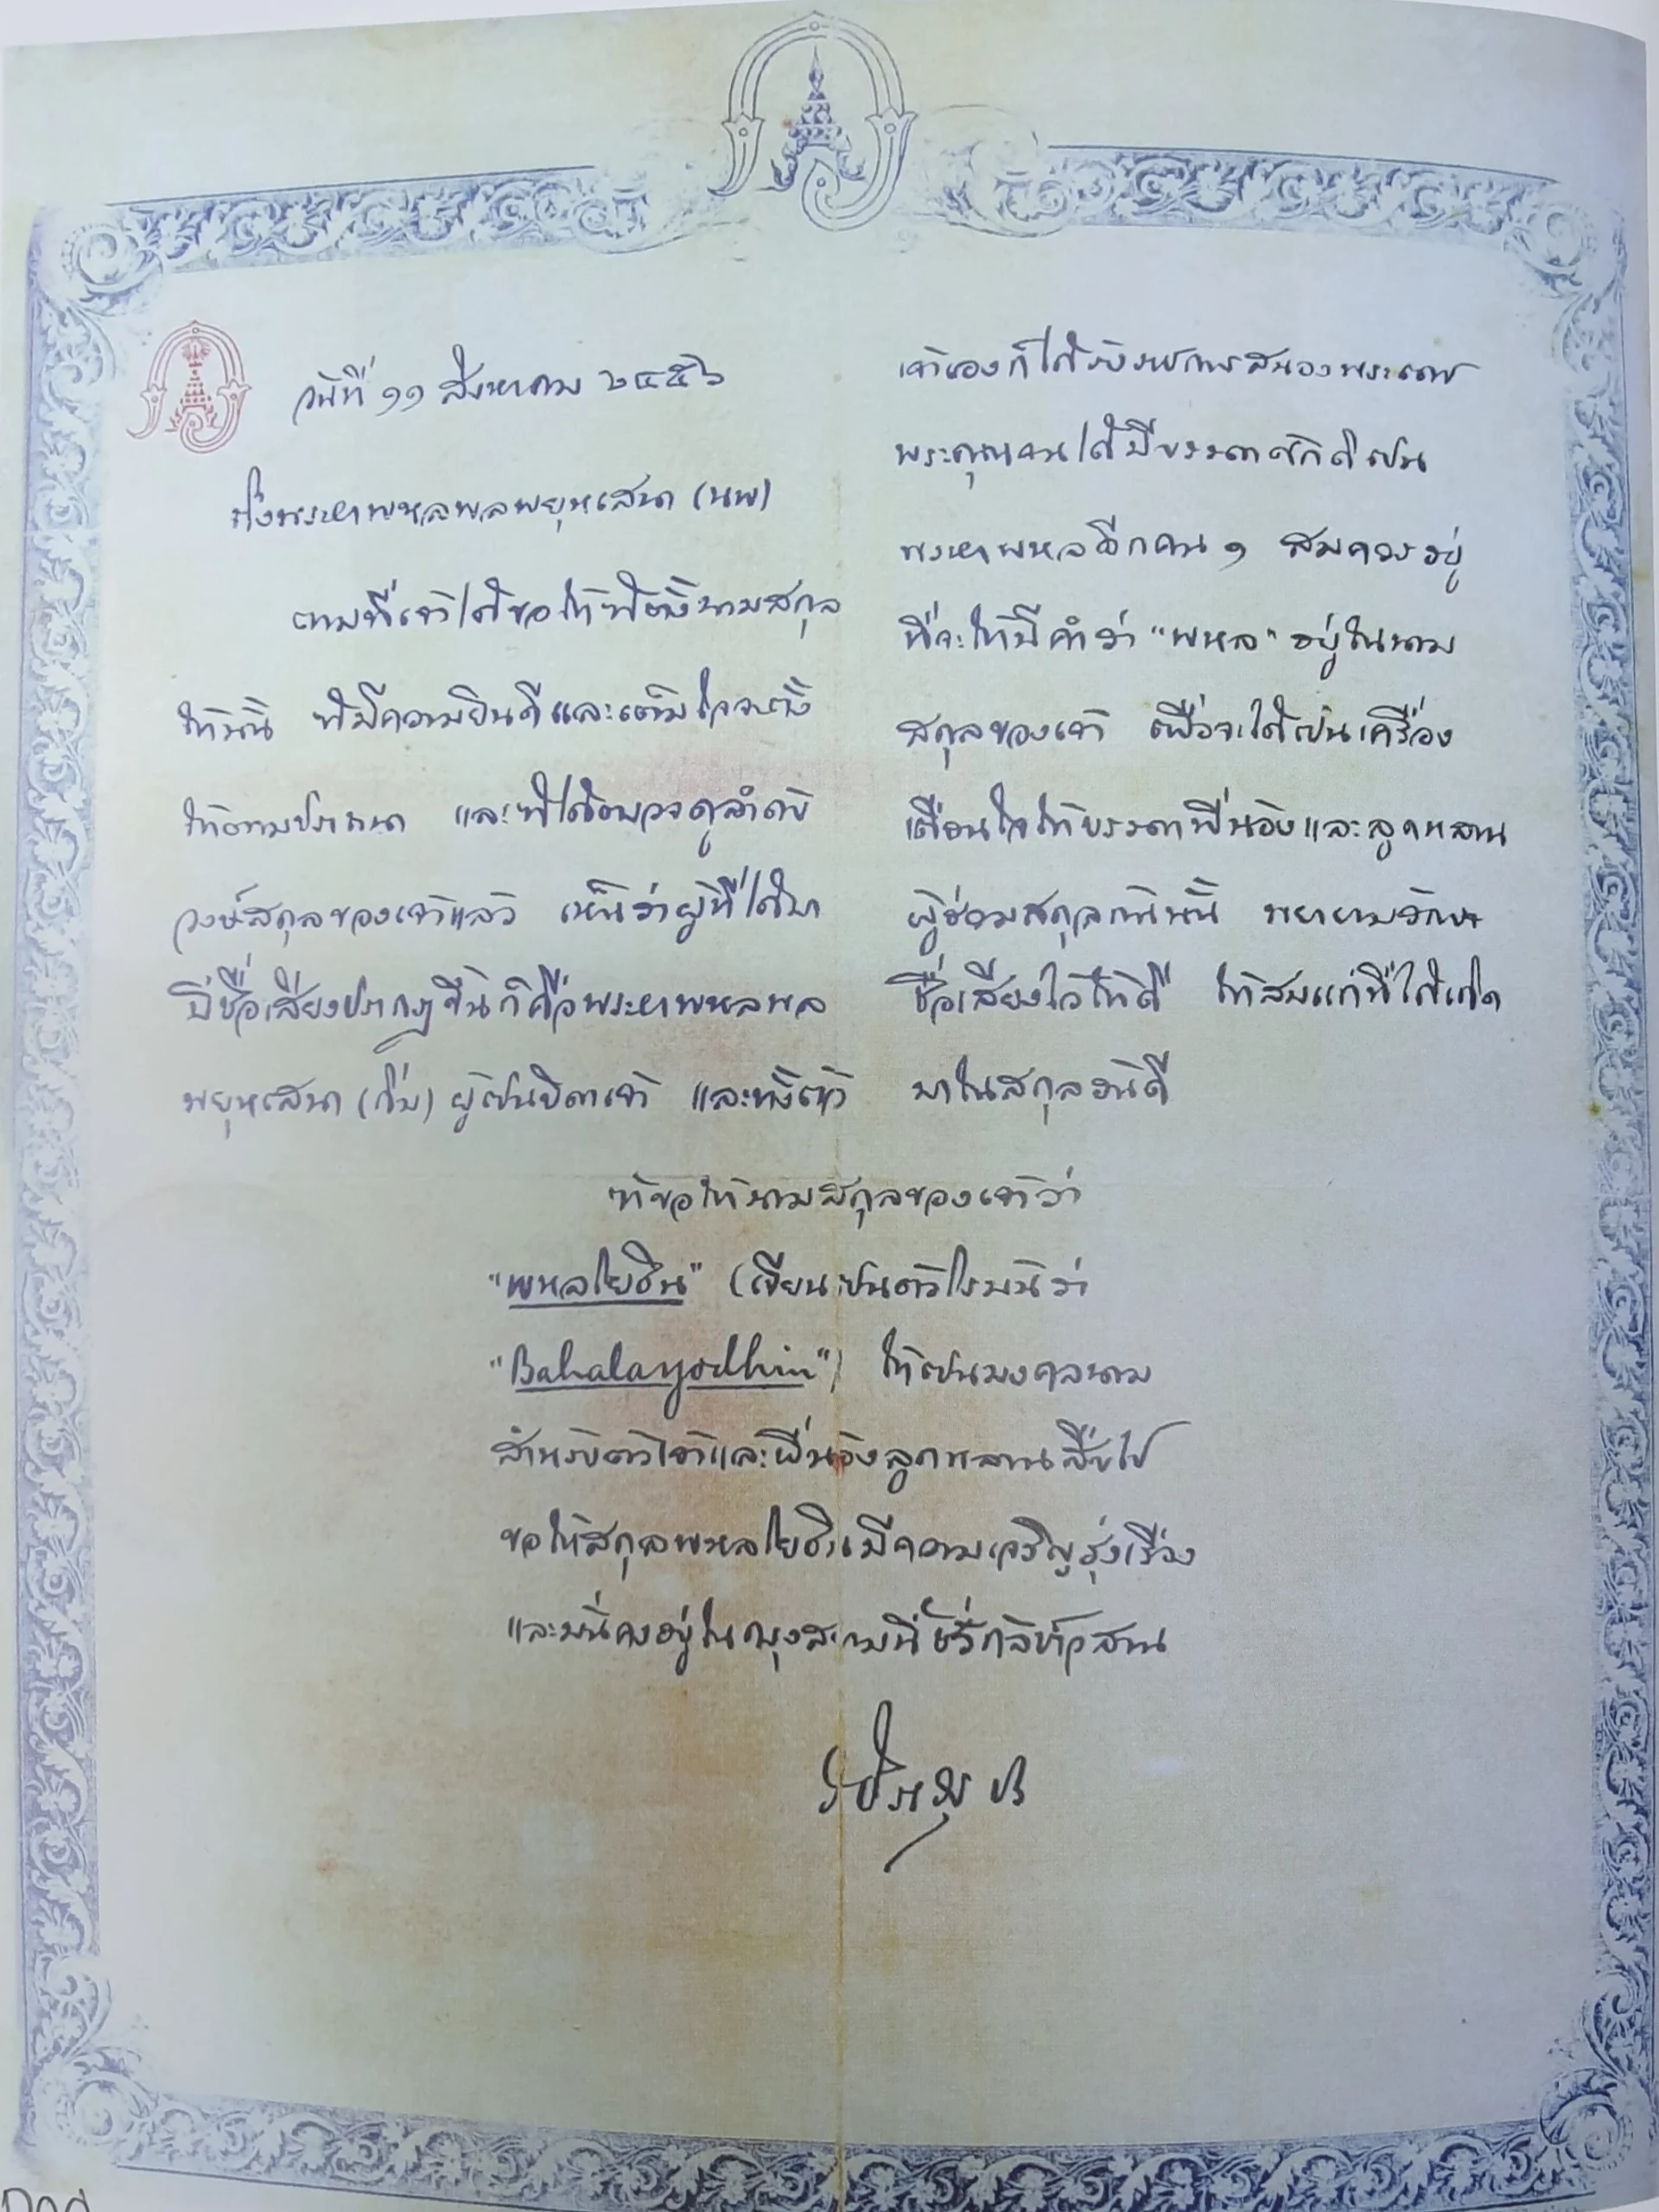 วันที่ ๑๑ สิงหาคม ๒๔๕๖
ถึงพระยาพหลพลพยุหเสนา (นพ)
ตามที่เจ้าได้ขอให้ข้าตั้งนามสกุล
ให้นั้น ข้ามีความยินดีและเต็มใจจะตั้ง
ให้ตามปรารถนา และข้าได้ตรวจดูลำดับ
วงษ์สกุลของเจ้าแล้ว เห็นว่าผู้ที่ได้มา
มีชื่อเสียงปรากฏขึ้นก็คือพระยาพหลพล
พยุหเสนา (กิ่ม) ผู้เปนบิดาเจ้า และทั้งตัว
เจ้าเองก็ได้รับราชการสนองพระเดช
พระคุณจนได้มีบรรดาศักดิ์เปน
พระยาพหลอีกคน ๑ สมควรอยู่
ที่จะให้มีคำว่า "พหล" อยู่ในนาม
สกุลของเจ้า เพื่อจะได้เปนเครื่อง
เตือนใจให้บรรดาพี่น้องและลูกหลาน
ผู้ร่วมสกุลกันนั้น พยายามรักษา
ชื่อเสียงไว้ให้ดี ให้สมแก่ที่ได้เกิด
มาในสกุลอันดี
ข้าขอให้นามสกุลของเจ้าว่า
"พหลโยธิน" (เขียนเปนตัวโรมันว่า
"Bahalayodhin") ให้เปนมงคลนาม
สำหรับตัวเจ้าและพี่น้องลูกหลานสืบไป
ขอให้สกุลพหลโยธินมีความเจริญรุ่งเรือง
และมั่นคงอยู่ในกรุงสยามนี้ชั่วกัลปาวสาน
ราม ปร